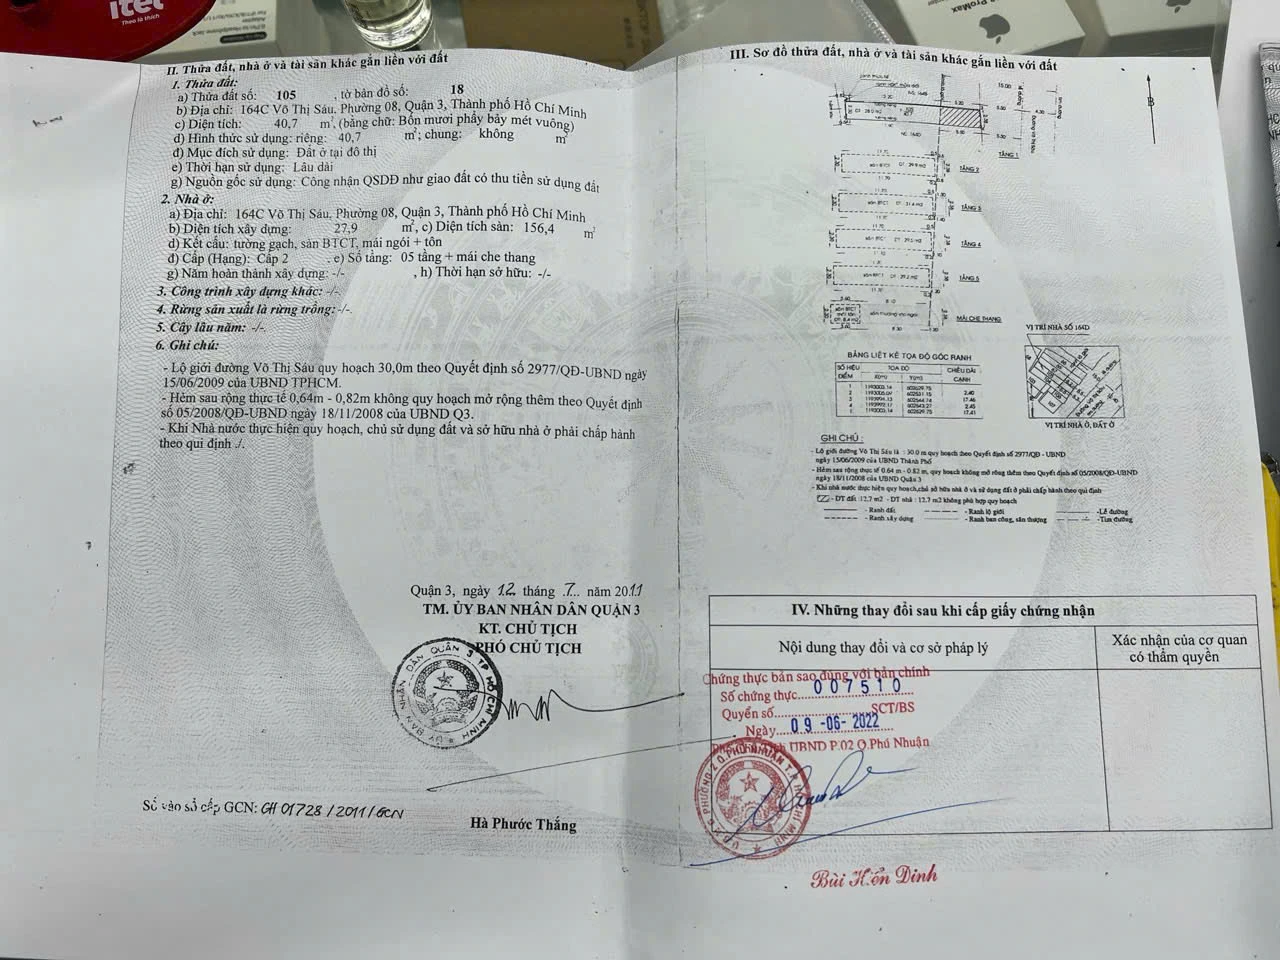 itel
Theo là thích
ProMax
II. Thửa đất, nhà ở và tài sản khác gắn liền với đất
1. Thửa đất:
a) Thửa đất số: 105 , tờ bản đồ số: 18
b) Địa chỉ: 164C Võ Thị Sáu, Phường 08, Quận 3, Thành phố Hồ Chí Minh
c) Diện tích: 40,7 m², (bằng chữ: Bốn mươi phẩy bảy mét vuông)
d) Hình thức sử dụng: riêng: 40,7 m²; chung: không m²
đ) Mục đích sử dụng: Đất ở tại đô thị
e) Thời hạn sử dụng: Lâu dài
g) Nguồn gốc sử dụng: Công nhận QSDĐ như giao đất có thu tiền sử dụng đất
2. Nhà ở:
a) Địa chỉ: 164C Võ Thị Sáu, Phường 08, Quận 3, Thành phố Hồ Chí Minh
b) Diện tích xây dựng: 27,9 m², c) Diện tích sàn: 156,4 m²
d) Kết cấu: tường gạch, sàn BTCT, mái ngói + tôn
đ) Cấp (Hạng): Cấp 2 . e) Số tầng: 05 tầng + mái che thang
g) Năm hoàn thành xây dựng: -/- , h) Thời hạn sở hữu: -/-
3. Công trình xây dựng khác: -/-
4. Rừng sản xuất là rừng trồng: -/-.
5. Cây lâu năm: -/-.
6. Ghi chú:
- Lộ giới đường Võ Thị Sáu quy hoạch 30,0m theo Quyết định số 2977/QĐ-UBND ngày
15/06/2009 của UBND TPHCM.
- Hẻm sau rộng thực tế 0,64m - 0,82m không quy hoạch mở rộng thêm theo Quyết định
số 05/2008/QĐ-UBND ngày 18/11/2008 của UBND Q3.
- Khi Nhà nước thực hiện quy hoạch, chủ sử dụng đất và sở hữu nhà ở phải chấp hành
theo qui định ./.
Quận 3, ngày 12 tháng 7 năm 2011
TM. ỦY BAN NHÂN DÂN QUẬN 3
KT. CHỦ TỊCH
PHÓ CHỦ TỊCH
Hà Phước Thắng
Số vào sổ cấp GCN: GH 01728/2011/GCN
III. Sơ đồ thửa đất, nhà ở và tài sản khác gắn liền với đất
B
TẦNG 1
TẦNG 2
TẦNG 3
TẦNG 4
TẦNG 5
MÁI CHE THANG
VỊ TRÍ NHÀ SỐ 164D
VỊ TRÍ NHÀ Ở, ĐẤT Ở
BẢNG LIỆT KÊ TỌA ĐỘ GÓC RANH
SỐ HIỆU ĐIỂM TỌA ĐỘ CHIỀU DÀI CẠNH
GHI CHÚ :
- Lộ giới đường Võ Thị Sáu là : 30.0 m quy hoạch theo Quyết định số 2977/QĐ - UBND
ngày 15/06/2009 của UBND Thành Phố
- Hẻm sau rộng thực tế 0.64 m - 0.82 m, quy hoạch không mở rộng thêm theo Quyết định số 05/2008/QĐ-UBND
ngày 18/11/2008 của UBND Quận 3
- Khi nhà nước thực hiện quy hoạch,chủ sở hữu nhà ở và sử dụng đất ở phải chấp hành theo qui định
- DT đất :12.7 m2 - DT nhà : 12.7 m2 không phù hợp quy hoạch
- Ranh đất - Ranh lộ giới - Lề đường
- Ranh xây dựng - Ranh ban công, sân thượng - Tim đường
IV. Những thay đổi sau khi cấp giấy chứng nhận
Nội dung thay đổi và cơ sở pháp lý
Xác nhận của cơ quan
có thẩm quyền
Chứng thực bản sao đúng với bản chính
Số chứng thực 007510
Quyển số SCT/BS
Ngày 09-06-2022
UBND P.02 Q.Phú Nhuận
Bùi Hiển Dinh